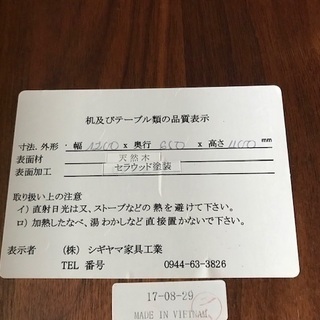 机及びテーブル類の品質表示
寸法. 外形 ・ 幅 1200 x 奥行 650 x 高さ 400 mm
表面材 天然木
表面加工 セラウッド塗装
取り扱い上の注意
イ）直射日光は又、ストーブなどの 熱を避けて下さい。
ロ）加熱したなべ、湯わかしなど 直接置かないで下さい。
表示者 （株） シギヤマ家具工業
TEL 番号 0944-63-3826
17-08-29
MADE IN VIETNAM